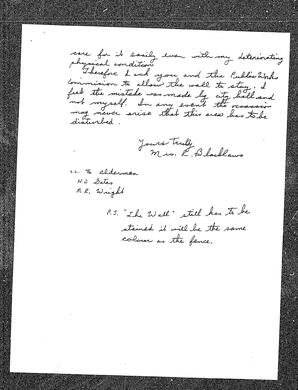 care for it easily even with my deteriorating
physical condition.
Therefore I ask you and the Public Works
Commision to allow the wall to stay. I
feel the mistake was made by city hall and
not myself. In any event the occassion
may never arise that this area has to be
disturbed.
Yours Truly
Mrs. L. Blacklaws
c.c. To Alderman
H.O.
R.R. Wright
P.S. "The Wall" still has to be
stained it will be the same
colour as the fence.